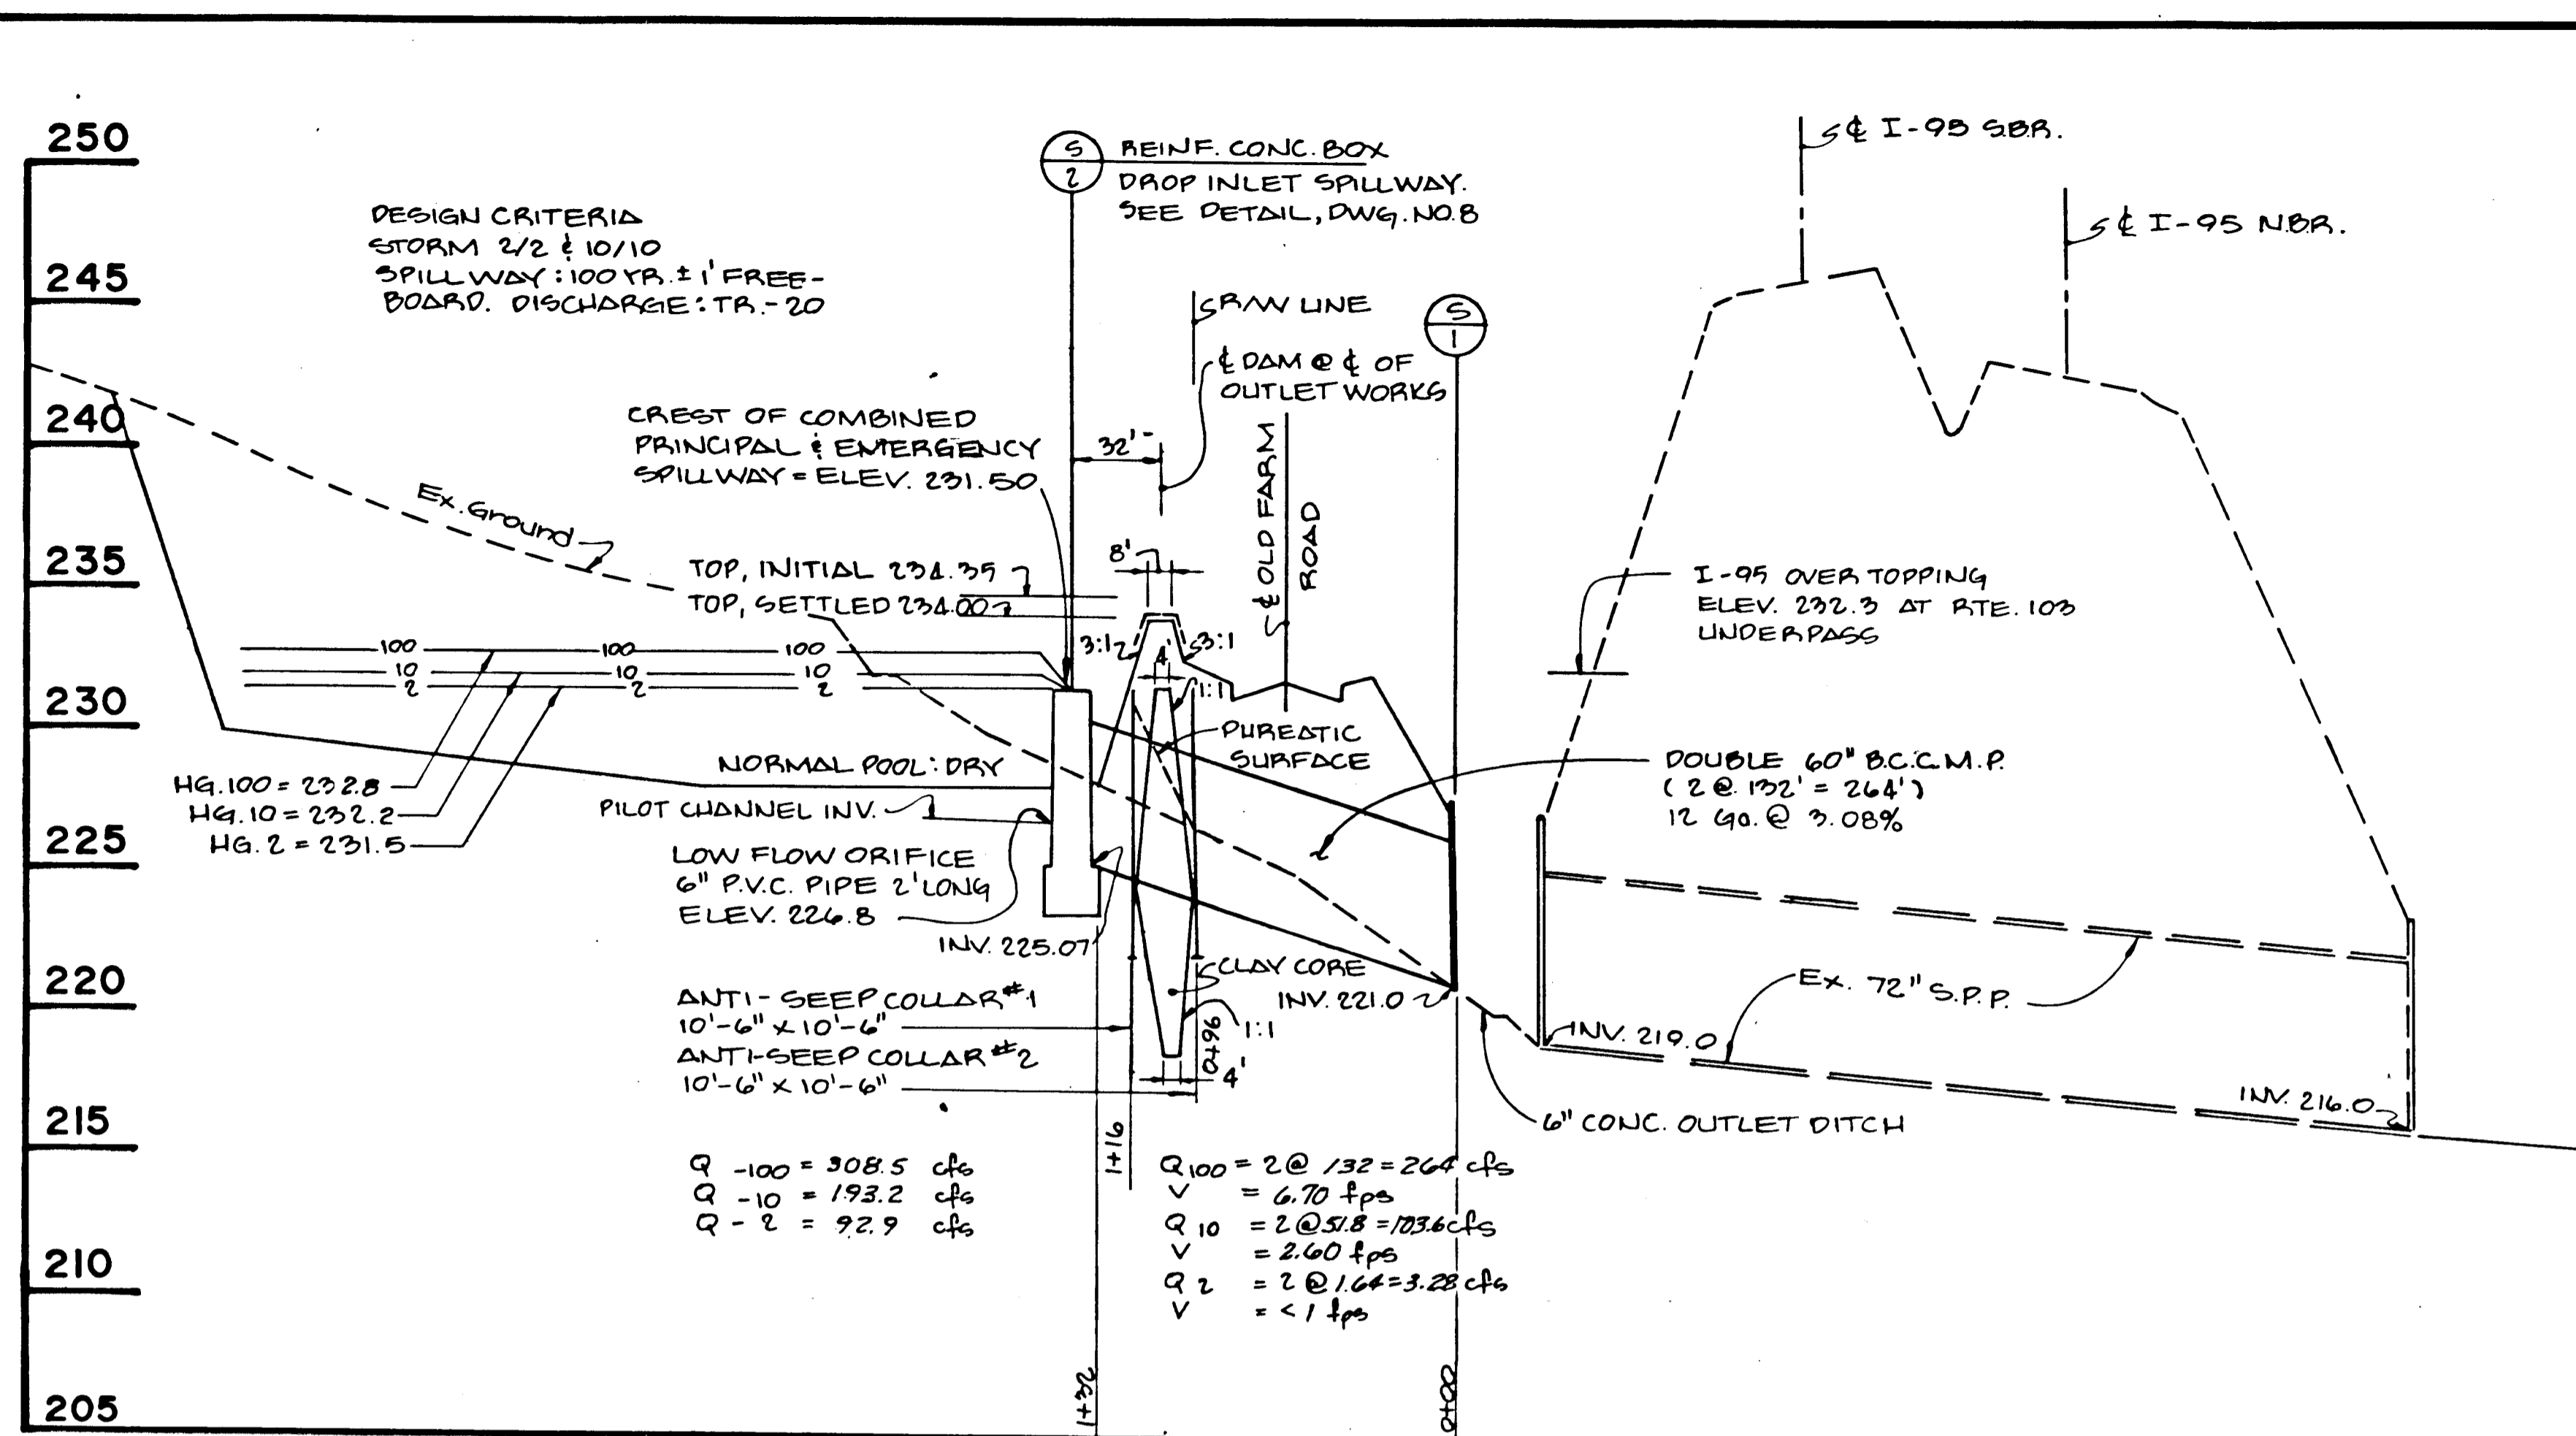 250
245
240
235
230
225
220
215
210
205
DESIGN CRITERIA
STORM 2/2 & 10/10
SPILLWAY: 100 YR. ± 1' FREE-
BOARD. DISCHARGE: TR.-20
S
2
REINF. CONC. BOX
DROP INLET SPILLWAY.
SEE DETAIL, DWG. NO. 8
R/W LINE
℄ DAM @ ℄ OF
OUTLET WORKS
S
1
℄ I-95 S.B.R.
℄ I-95 N.B.R.
CREST OF COMBINED
PRINCIPAL & EMERGENCY
SPILLWAY = ELEV. 231.50
32'-
℄ OLD FARM
ROAD
Ex. Ground
TOP, INITIAL 234.35
TOP, SETTLED 234.00
8'
3:1
3:1
4'
1:1
100 100 100
10 10 10
2 2 2
I-95 OVERTOPPING
ELEV. 232.3 AT RTE. 103
UNDERPASS
PHREATIC
SURFACE
NORMAL POOL: DRY
HG. 100 = 232.8
HG. 10 = 232.2
HG. 2 = 231.5
PILOT CHANNEL INV.
DOUBLE 60" B.C.C.M.P.
(2 @ 132' = 264')
12 Ga. @ 3.08%
LOW FLOW ORIFICE
6" P.V.C. PIPE 2' LONG
ELEV. 226.8
INV. 225.07
CLAY CORE
INV. 221.0
1:1
0+96
4'
ANTI-SEEP COLLAR #1
10'-6" x 10'-6"
ANTI-SEEP COLLAR #2
10'-6" x 10'-6"
Ex. 72" S.P.P.
INV. 219.0
INV. 216.0
6" CONC. OUTLET DITCH
1+16
Q -100 = 308.5 cfs
Q -10 = 193.2 cfs
Q - 2 = 92.9 cfs
Q 100 = 2 @ 132 = 264 cfs
V = 6.70 fps
Q 10 = 2 @ 51.8 = 103.6 cfs
V = 2.60 fps
Q 2 = 2 @ 1.64 = 3.28 cfs
V = < 1 fps
1+32
0+00